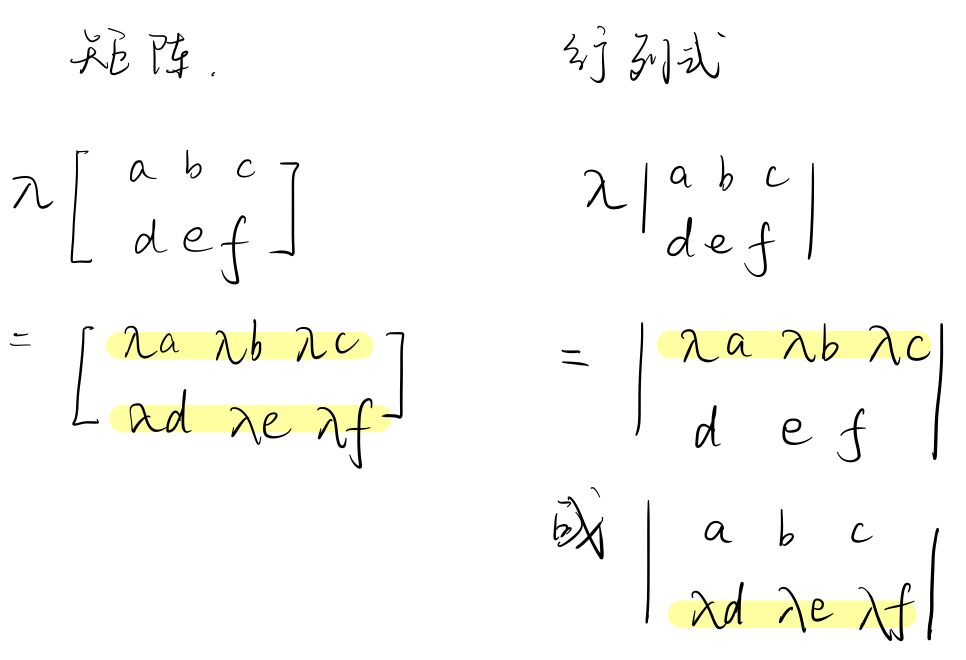 矩阵.
λ [ a b c
d e f ]
= [ λa λb λc
λd λe λf ]
行列式
λ | a b c |
d e f
= | λa λb λc |
d e f
或 | a b c |
λd λe λf